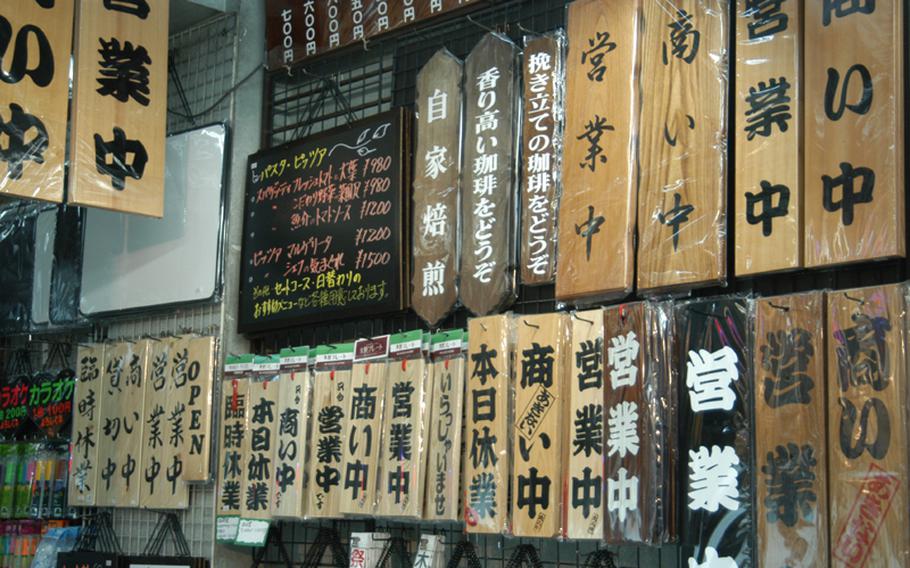 営業中
い中
七〇〇円
六〇〇円
自家焙煎
香り高い珈琲をどうぞ
挽き立ての珈琲をどうぞ
営業中
商い中
営業中
商い中
パスタ・ピッツァ
スパゲッティ フレッシュトマトと大葉 ¥980
〃 こだわり野菜と ¥980
〃 魚介のトマトソース ¥1200
ピッツァ マルゲリータ ¥1200
〃 シェフの気まぐれ ¥1500
その他・セットコース・日替わりの
カラオケ
カラオケ
臨時休業
貸切中
商い中
営業中
営業中
OPEN
臨時休業
本日休業
商い中
営業中
商い中
営業中
いらっしゃいませ
本日休業
商い中
営業中
営業中
営業
営業
商い